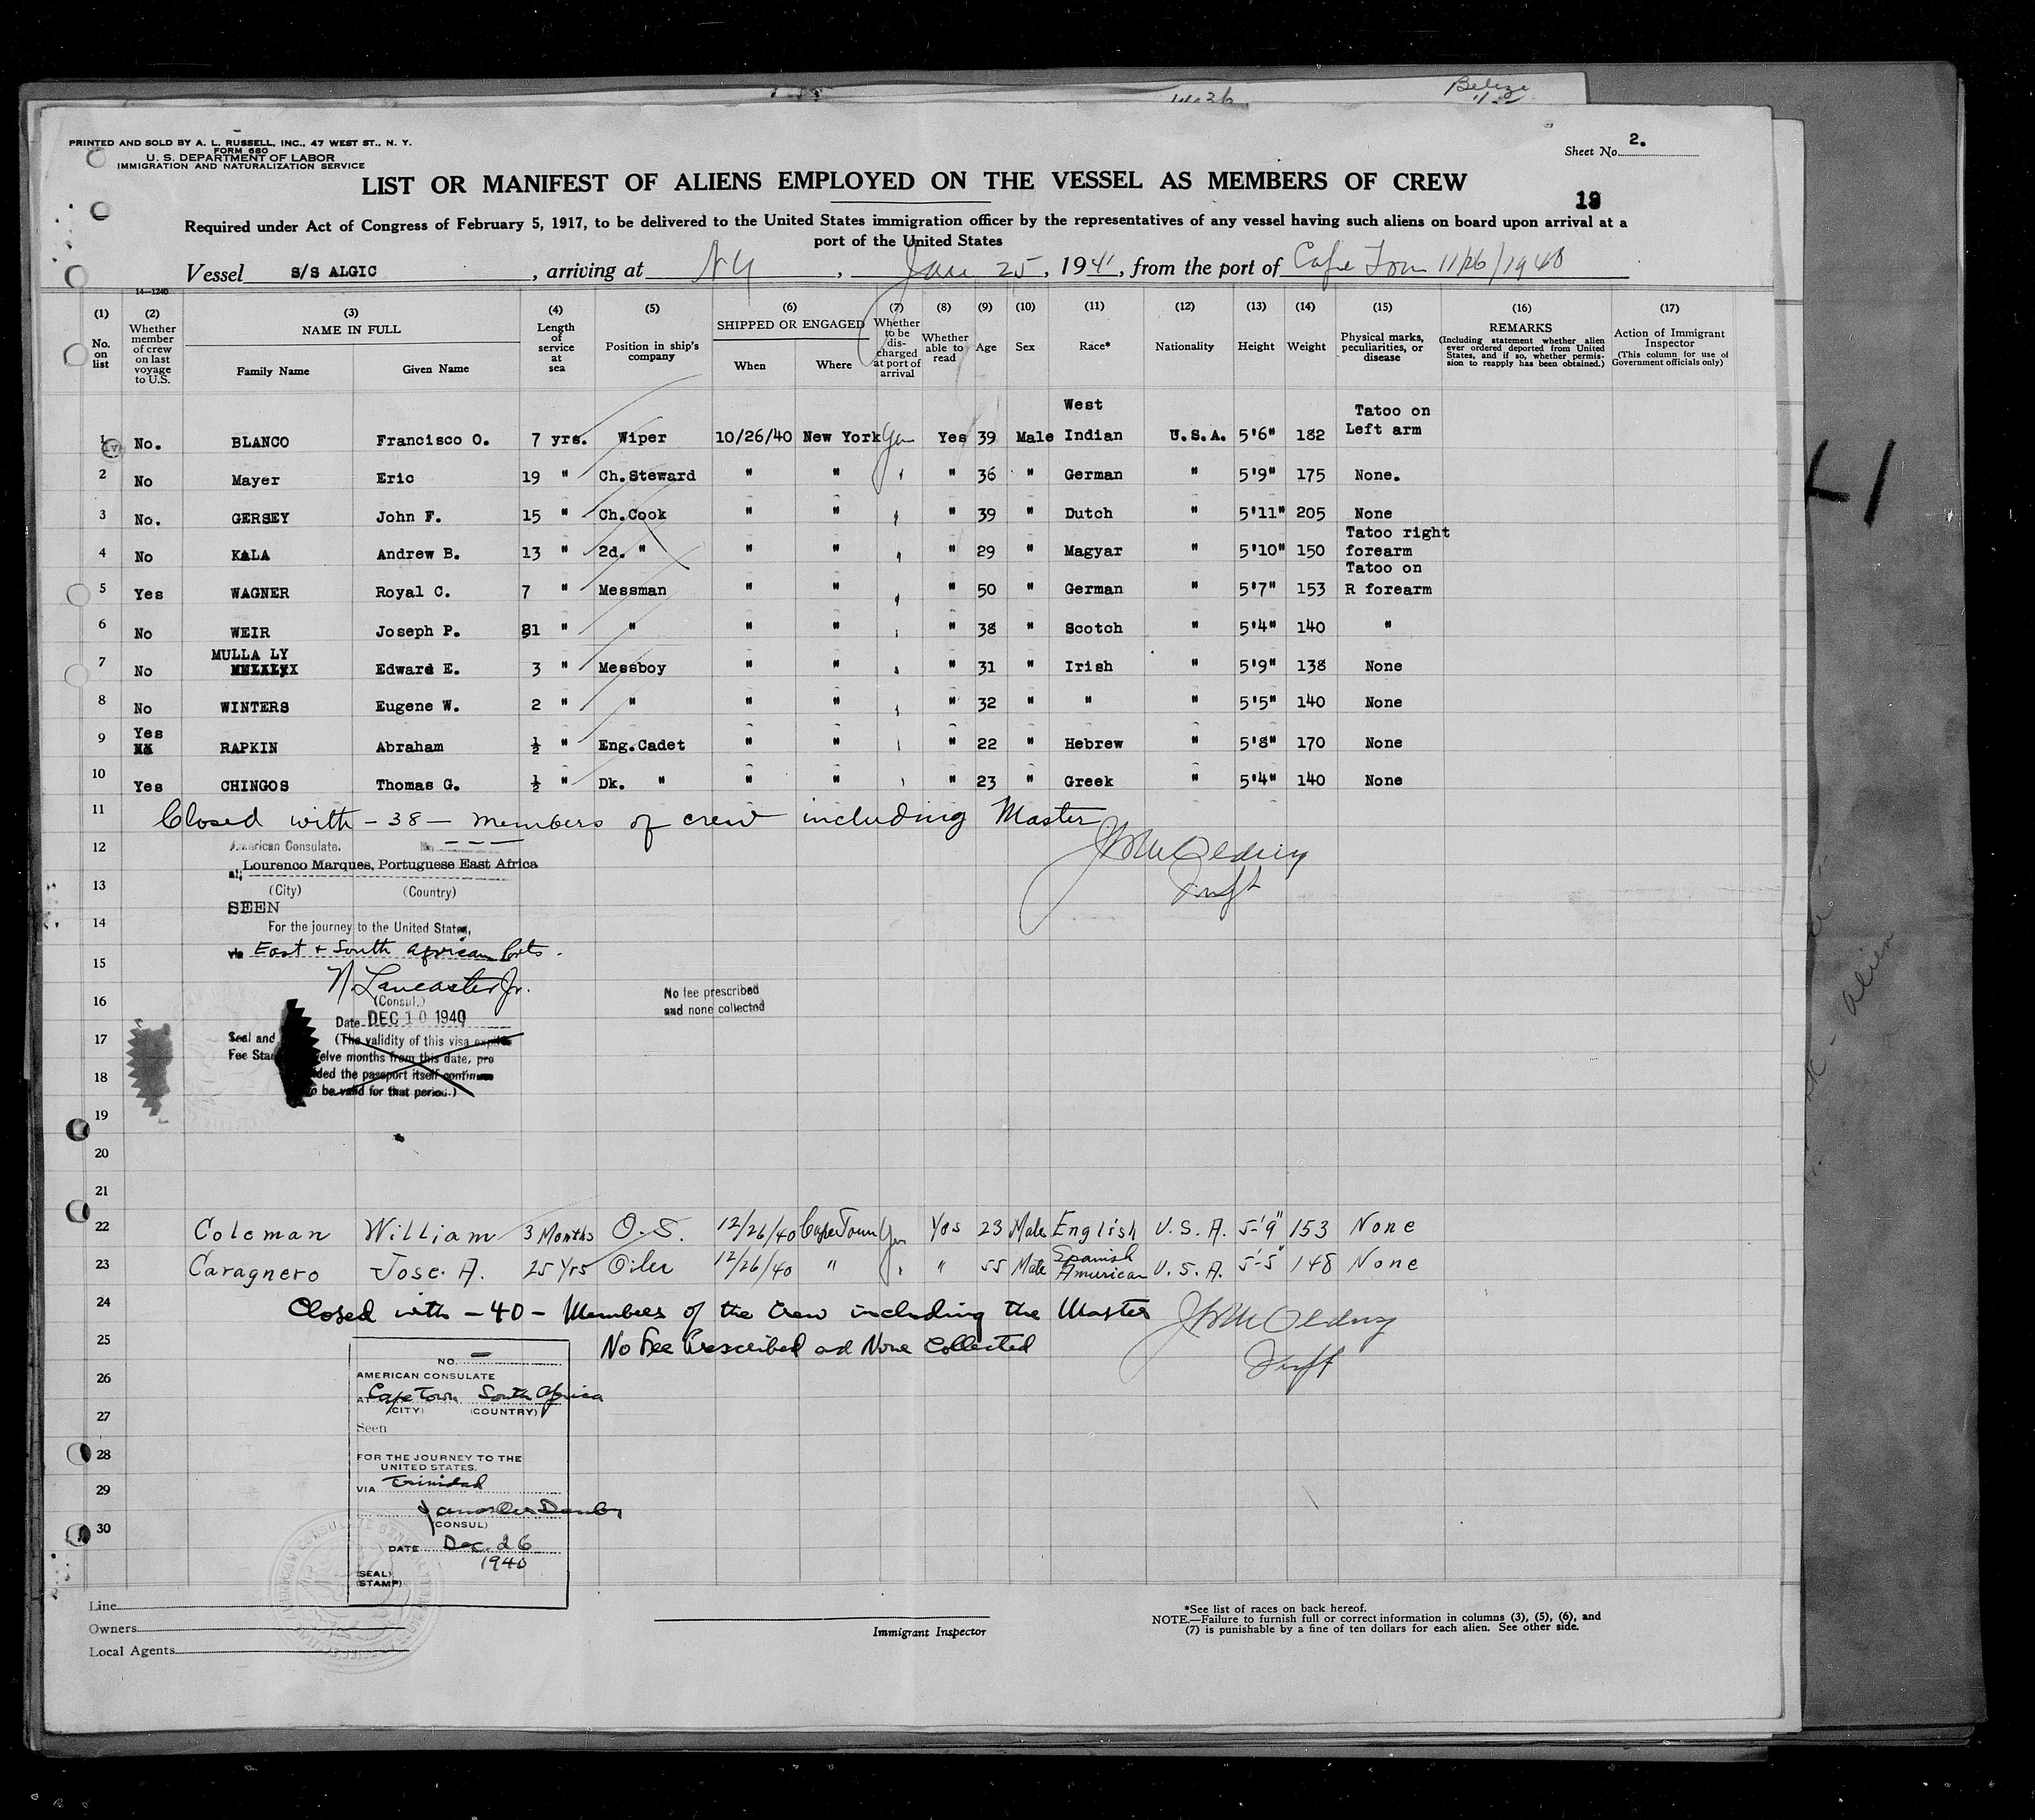 Belize
PRINTED AND SOLD BY A. L. RUSSELL, INC., 47 WEST ST., N. Y.
FORM 680
U. S. DEPARTMENT OF LABOR
IMMIGRATION AND NATURALIZATION SERVICE
Sheet No. 2.
LIST OR MANIFEST OF ALIENS EMPLOYED ON THE VESSEL AS MEMBERS OF CREW
Required under Act of Congress of February 5, 1917, to be delivered to the United States immigration officer by the representatives of any vessel having such aliens on board upon arrival at a
port of the United States
Vessel S/S ALGIC, arriving at NY, Jan 25, 1941, from the port of Cape Town 11/26/1940
14-1240
(1) (2) (3) (4) (5) (6) (7) (8) (9) (10) (11) (12) (13) (14) (15) (16) (17)
No. on list
Whether member of crew on last voyage to U.S.
NAME IN FULL
Family Name Given Name
Length of service at sea
Position in ship's company
SHIPPED OR ENGAGED
When Where
Whether to be discharged at port of arrival
Whether able to read
Age
Sex
Race*
Nationality
Height
Weight
Physical marks, peculiarities, or disease
REMARKS
(Including statement whether alien ever ordered deported from United States, and if so, whether permission to reapply has been obtained.)
Action of Immigrant Inspector
(This column for use of Government officials only)
1 No. BLANCO Francisco O. 7 yrs. Wiper 10/26/40 New York Yes Yes 39 Male West Indian U.S.A. 5'6" 182 Tatoo on Left arm
2 No Mayer Eric 19 " Ch.Steward " " " " 36 " German " 5'9" 175 None.
3 No. GERSEY John F. 15 " Ch.Cook " " " " 39 " Dutch " 5'11" 205 None
4 No KALA Andrew B. 13 " 2d. " " " " " 29 " Magyar " 5'10" 150 Tatoo right forearm
5 Yes WAGNER Royal C. 7 " Messman " " " " 50 " German " 5'7" 153 Tatoo on R forearm
6 No WEIR Joseph P. 21 " " " " " " 38 " Scotch " 5'4" 140 "
7 No MULLA LY Edward E. 3 " Messboy " " " " 31 " Irish " 5'9" 138 None
8 No WINTERS Eugene W. 2 " " " " " " 32 " " " 5'5" 140 None
9 Yes RAPKIN Abraham ½ " Eng.Cadet " " " " 22 " Hebrew " 5'8" 170 None
10 Yes CHINGOS Thomas G. ½ " Dk. " " " " " 23 " Greek " 5'4" 140 None
11 Closed with - 38 - members of crew including Master
12 American Consulate. No.
at Lourenco Marques, Portuguese East Africa
13 (City) (Country)
SEEN
14 For the journey to the United States,
via East + South African Ports.
15
N Lancaster Jr.
16 (Consul.)
No fee prescribed
and none collected
Date DEC 10 1940
17 Seal and (The validity of this visa expires
Fee Stamp twelve months from this date, pro
18 vided the passport itself continues
to be valid for that period.)
19
20
21
22 Coleman William 3 Months O.S. 12/26/40 Cape Town Yes Yes 23 Male English U.S.A. 5'9" 153 None
23 Caragnero Jose. A. 25 Yrs Oiler 12/26/40 " " " 55 Male Spanish American U.S.A. 5'5" 148 None
24 Closed with - 40 - Members of the Crew including the Master
25 No Fee Prescribed and None Collected
NO. —
26 AMERICAN CONSULATE
AT Cape Town South Africa
27 (CITY) (COUNTRY)
Seen
28 FOR THE JOURNEY TO THE
UNITED STATES.
29 VIA Trinidad
30 (CONSUL)
DATE Dec. 26
1940
(SEAL)
(STAMP)
Line
Owners
Local Agents
Immigrant Inspector
*See list of races on back hereof.
NOTE.—Failure to furnish full or correct information in columns (3), (5), (6), and
(7) is punishable by a fine of ten dollars for each alien. See other side.
alien